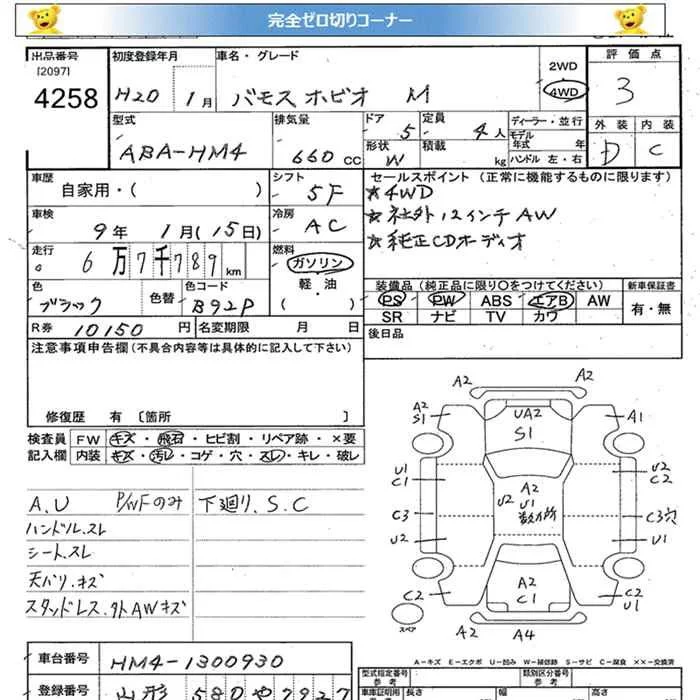 完全ゼロ切りコーナー
出品番号
[2097]
4258
初度登録年月
H20 1月
車名・グレード
バモスホビオ M
2WD
4WD
評価点
3
型式
ABA-HM4
排気量
660 CC
ドア
5
定員
4人
ディーラー・並行
モデル年式 年
形状
W
積載
kg
ハンドル 左・右
外装
D
内装
C
車歴
自家用・( )
シフト
5F
セールスポイント (正常に機能するものに限ります)
☆4WD
☆社外12インチAW
☆純正CDオーディオ
車検
9年 1月(15日)
冷房
AC
走行
6万7千789km
燃料
ガソリン
軽・油
( ・ )
色
ブラック
色替
色コード
B92P
装備品 (純正品に限り○をつけてください)
PS PW ABS エアB AW
SR ナビ TV カワ
新車保証書
有・無
R券 10150円
名変期限 月 日
後日品
注意事項申告欄(不具合内容等は具体的に記入して下さい)
修復歴 有 〔箇所 〕
検査員記入欄
FW キズ・飛石・ヒビ割・リペア跡・×要
内装 キズ・汚レ・コゲ・穴・スレ・キレ・破レ
A.U P/WFのみ
ハンドル.スレ
シート.スレ
天バリ.キズ
スタッドレス.外AWキズ
下廻り.S.C
A2 A2
A2
S1
UA2
S1
A1
U1
C1
U2
C2
A2
U1
数カ所
U2
C3
C3穴
U2
U1
C2
A2
C1
C2
U1
スペア
A2 A4
A-キズ E-エクボ U-凹み W-補修跡 S-サビ C-腐食 ××-交換済
車台番号
HM4-1300930
登録番号
山形 580 や 2927
型式指定番号
参考
類別区分番号
参考
車庫証明用
長さ
幅
高さ